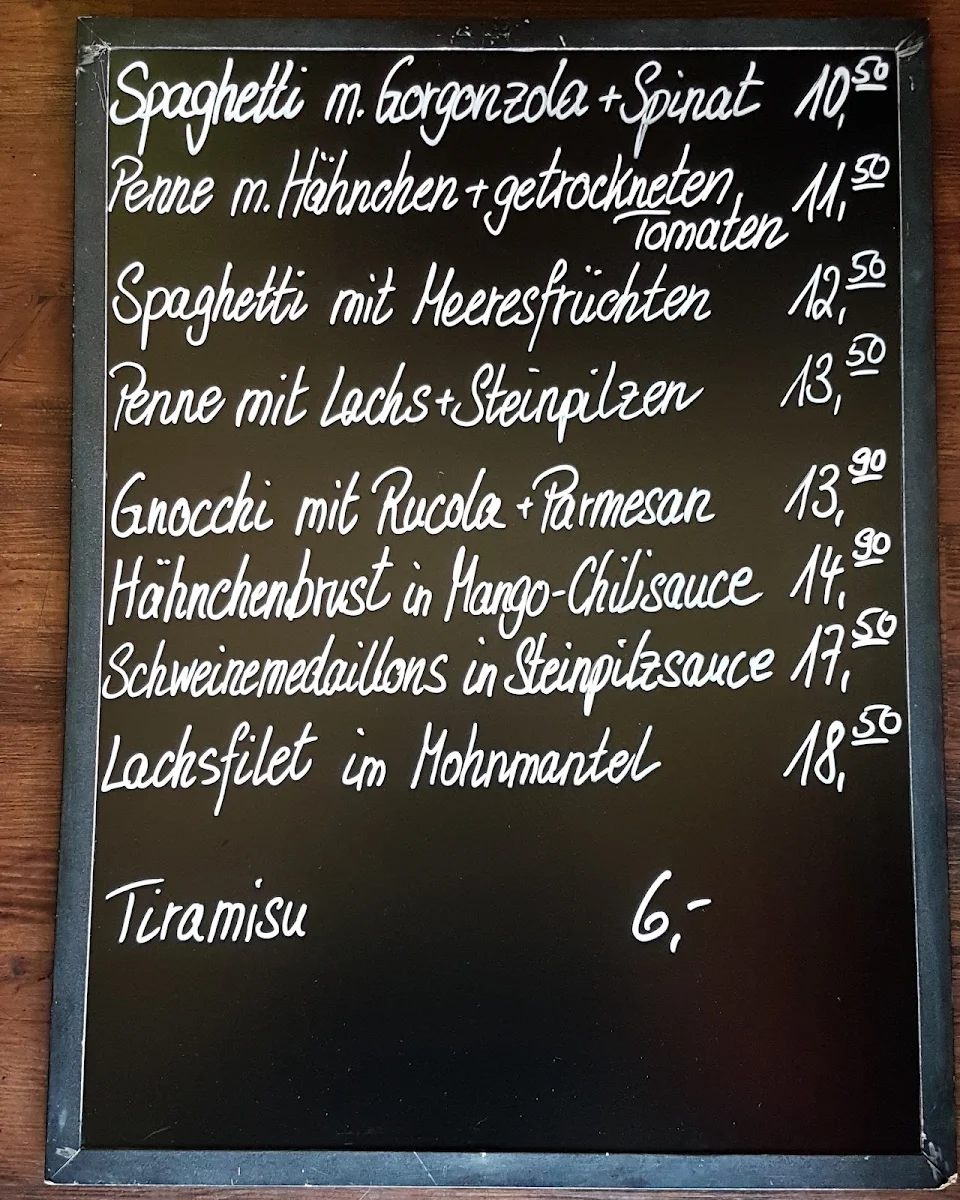 Spaghetti m. Gorgonzola + Spinat 10,50
Penne m. Hähnchen + getrockneten 11,50
Tomaten
Spaghetti mit Meeresfrüchten 12,50
Penne mit Lachs + Steinpilzen 13,50
Gnocchi mit Rucola + Parmesan 13,90
Hähnchenbrust in Mango-Chilisauce 14,90
Schweinemedaillons in Steinpilzsauce 17,50
Lachsfilet im Mohnmantel 18,50
Tiramisu 6,-